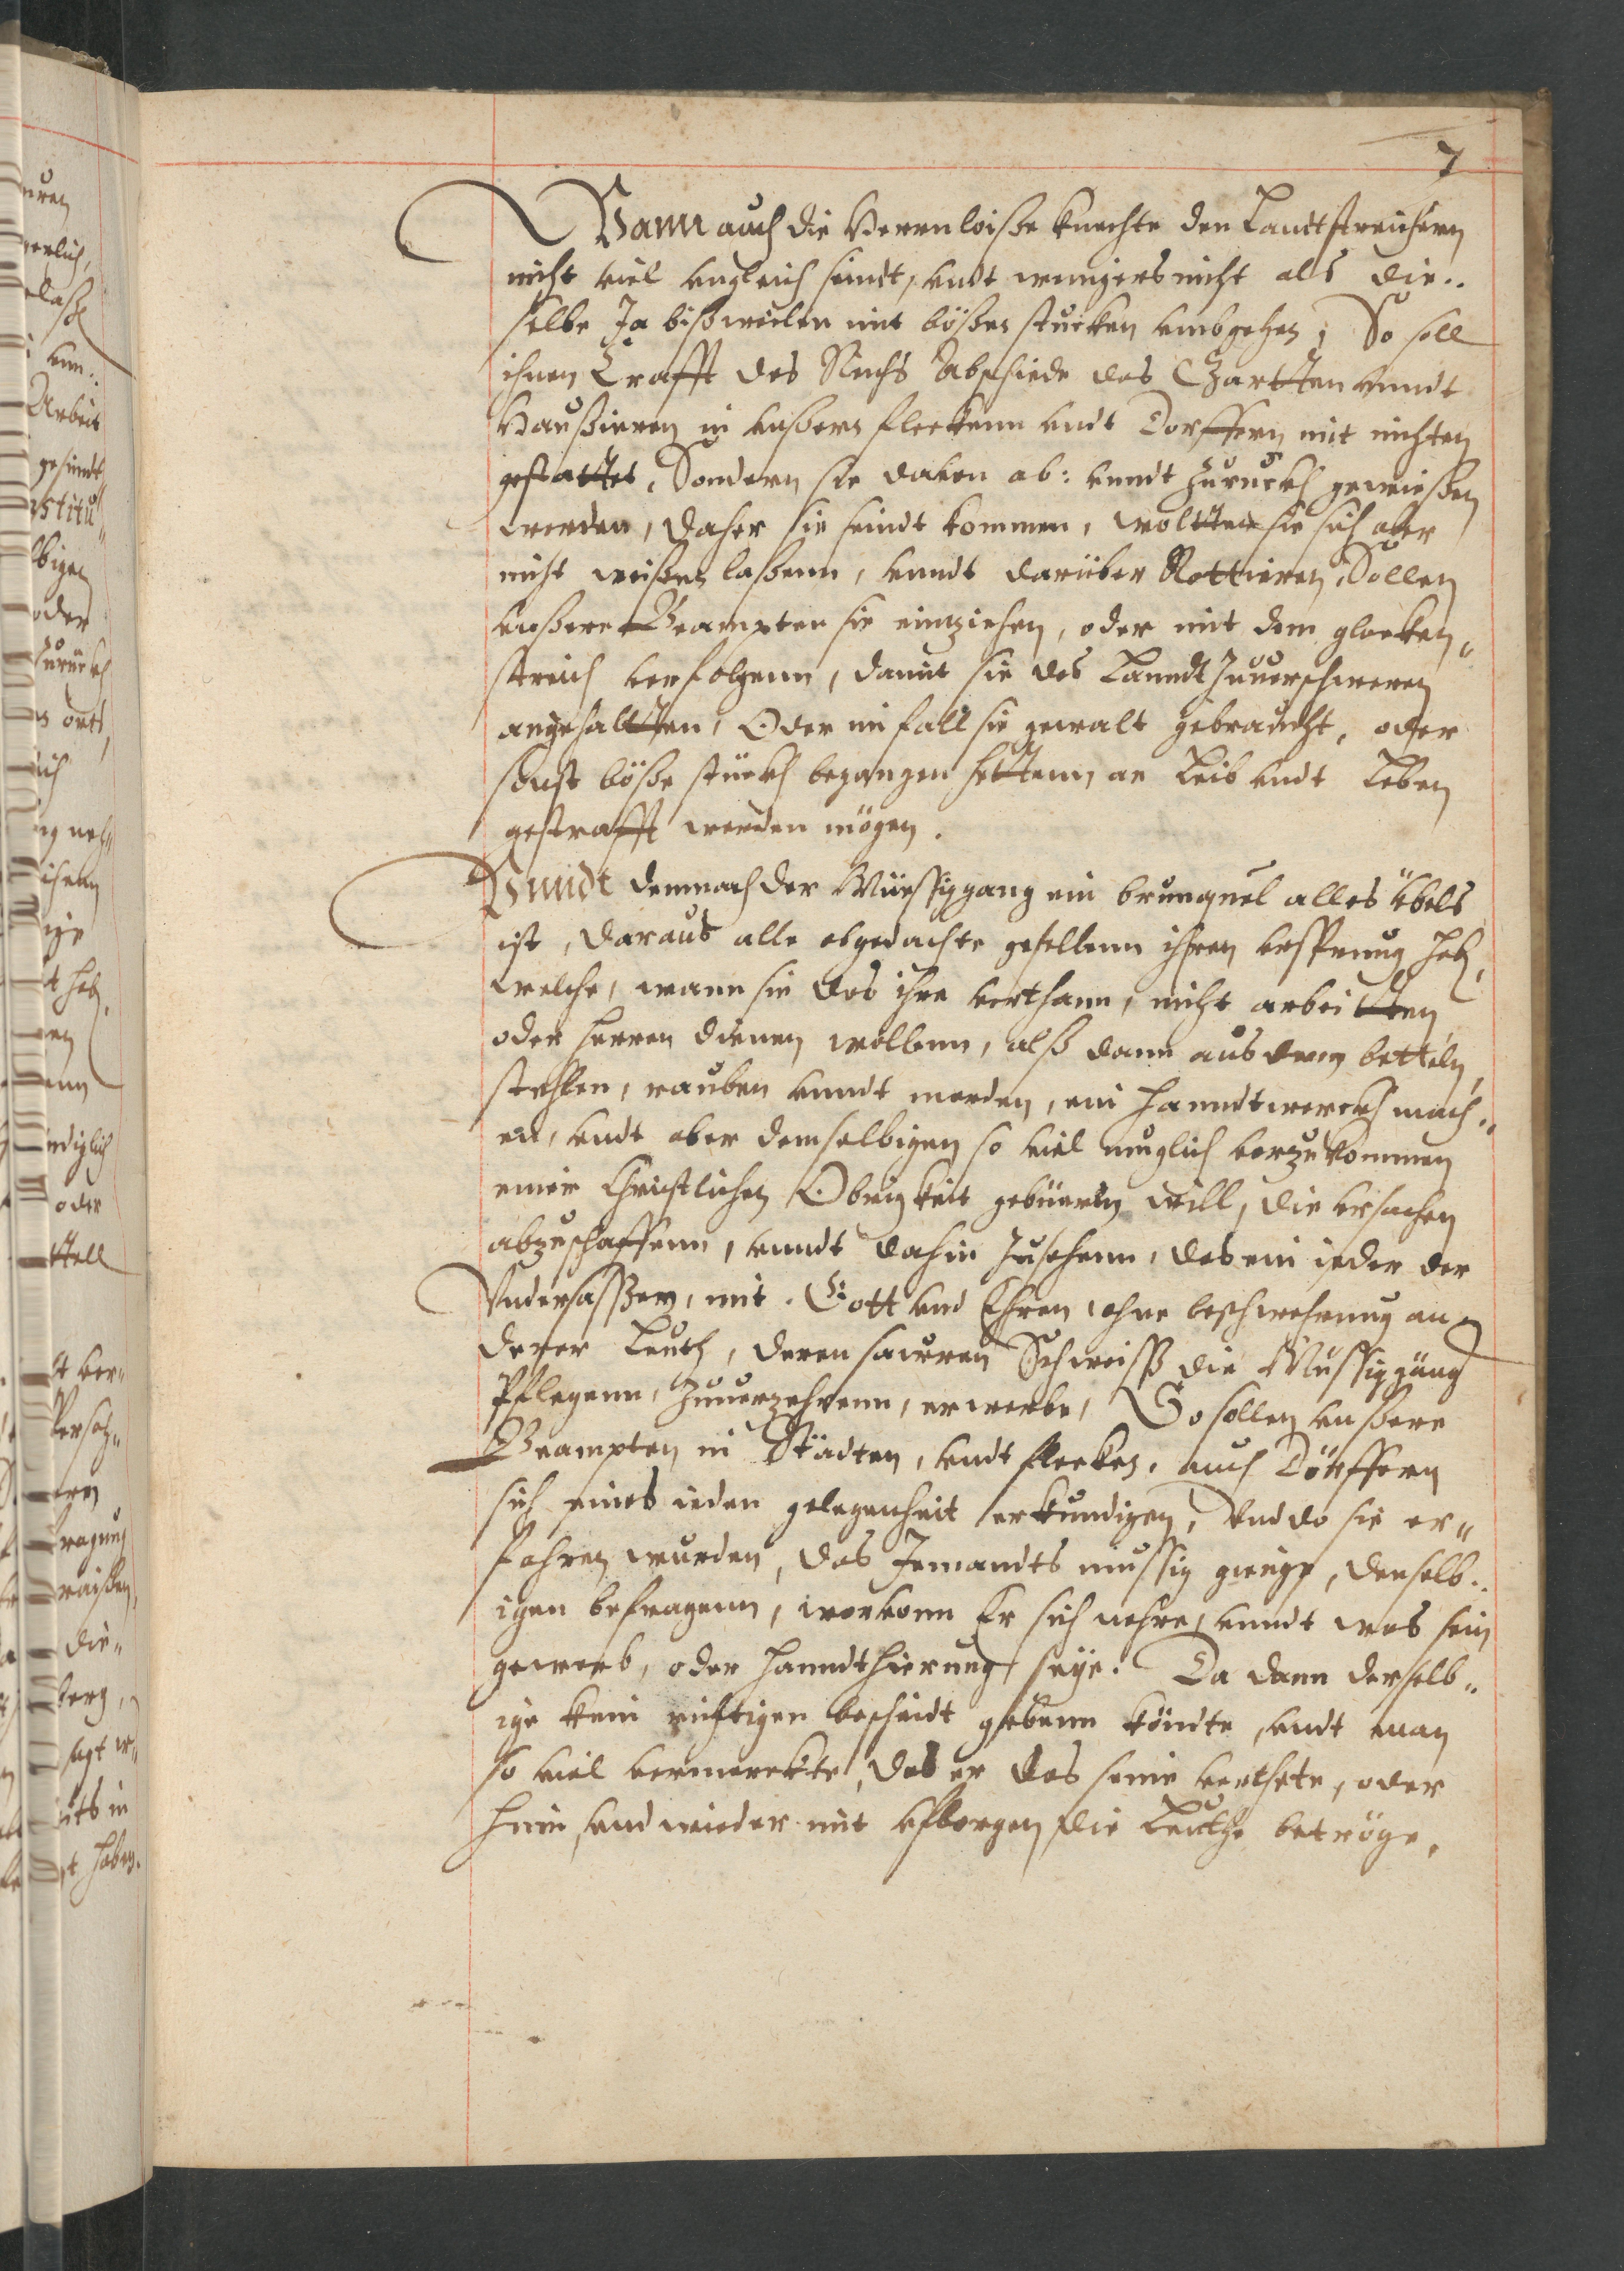 7
Wann auch die Herrenloiße knechte den Landtstreichern
nicht viel vngleich seindt, vndt wenigers nicht als die„
selbe Ja bißweilen mit bößen stucken vmbgehen; So soll
ihnen Crafft des Reichs Abschiede das Gartten vnndt
Haußieren in vnßern fleckenn vndt Dorffern mit nichten
gestattet, Sondern sie davon ab: vnndt zuruckh gewießen
werden, daher sie seindt kommen, woltten sie sich aber
nicht weißen laßenn, vnndt darüber Rottieren, Sollen
vnßere Beampten sie einziehen, oder mit dem glocken„
streich verfolgenn, damit sie des Lanndt zuuerschweren
angehaltten, Oder im fall sie gewalt gebraucht, oder
sonst böße stückh begangen hettenn, an Leib vndt Leben
gestrafft werden mögen.
Vnndt demnach der Müessiggang ein brunquel alles übels
ist, daraus alle obgedachte gesellenn ihren vrsprung hab,
welche, wann sie das ihre verthann, nicht arbeitten
oder herren dienen wollenn, alß dann aus dem betteln,
stehlen, rauben vnndt morden, ein hanndtwerckh mach„
en, vndt aber demselbigen so viel muglich vorzukommen
einer Christlichen Obrigkeit gebüeren will, die vrsachen
abzuschaffenn, vnndt dahin zusehenn, das ein jeder der
Vndersaßen, mit Gott vnd Ehren, ohne beschwehrung an„
derer Leuth, deren sauren Schweiß die Mussiggäng
Pflegenn, zuuerzehrenn, erwerbe, So sollen vnßere
Beampten in Städten, vndt flecken, auch Dörffern
sich eines ieden gelegenheit erkundigen, Vnd do sie er„
fahren wurden, das Jemandts mussig gienge, denselb„
igen befragenn, worvonn Er sich nehre, vnndt was sein
gewerb, oder hanndthierung seye. Da dann derselb„
ige kein richtigen bescheidt gebenn köndte, vndt man
so viel vermerckte, das er das seine verthete, oder
hin, vnd wieder mit vfborgen die Leuthe betröge,